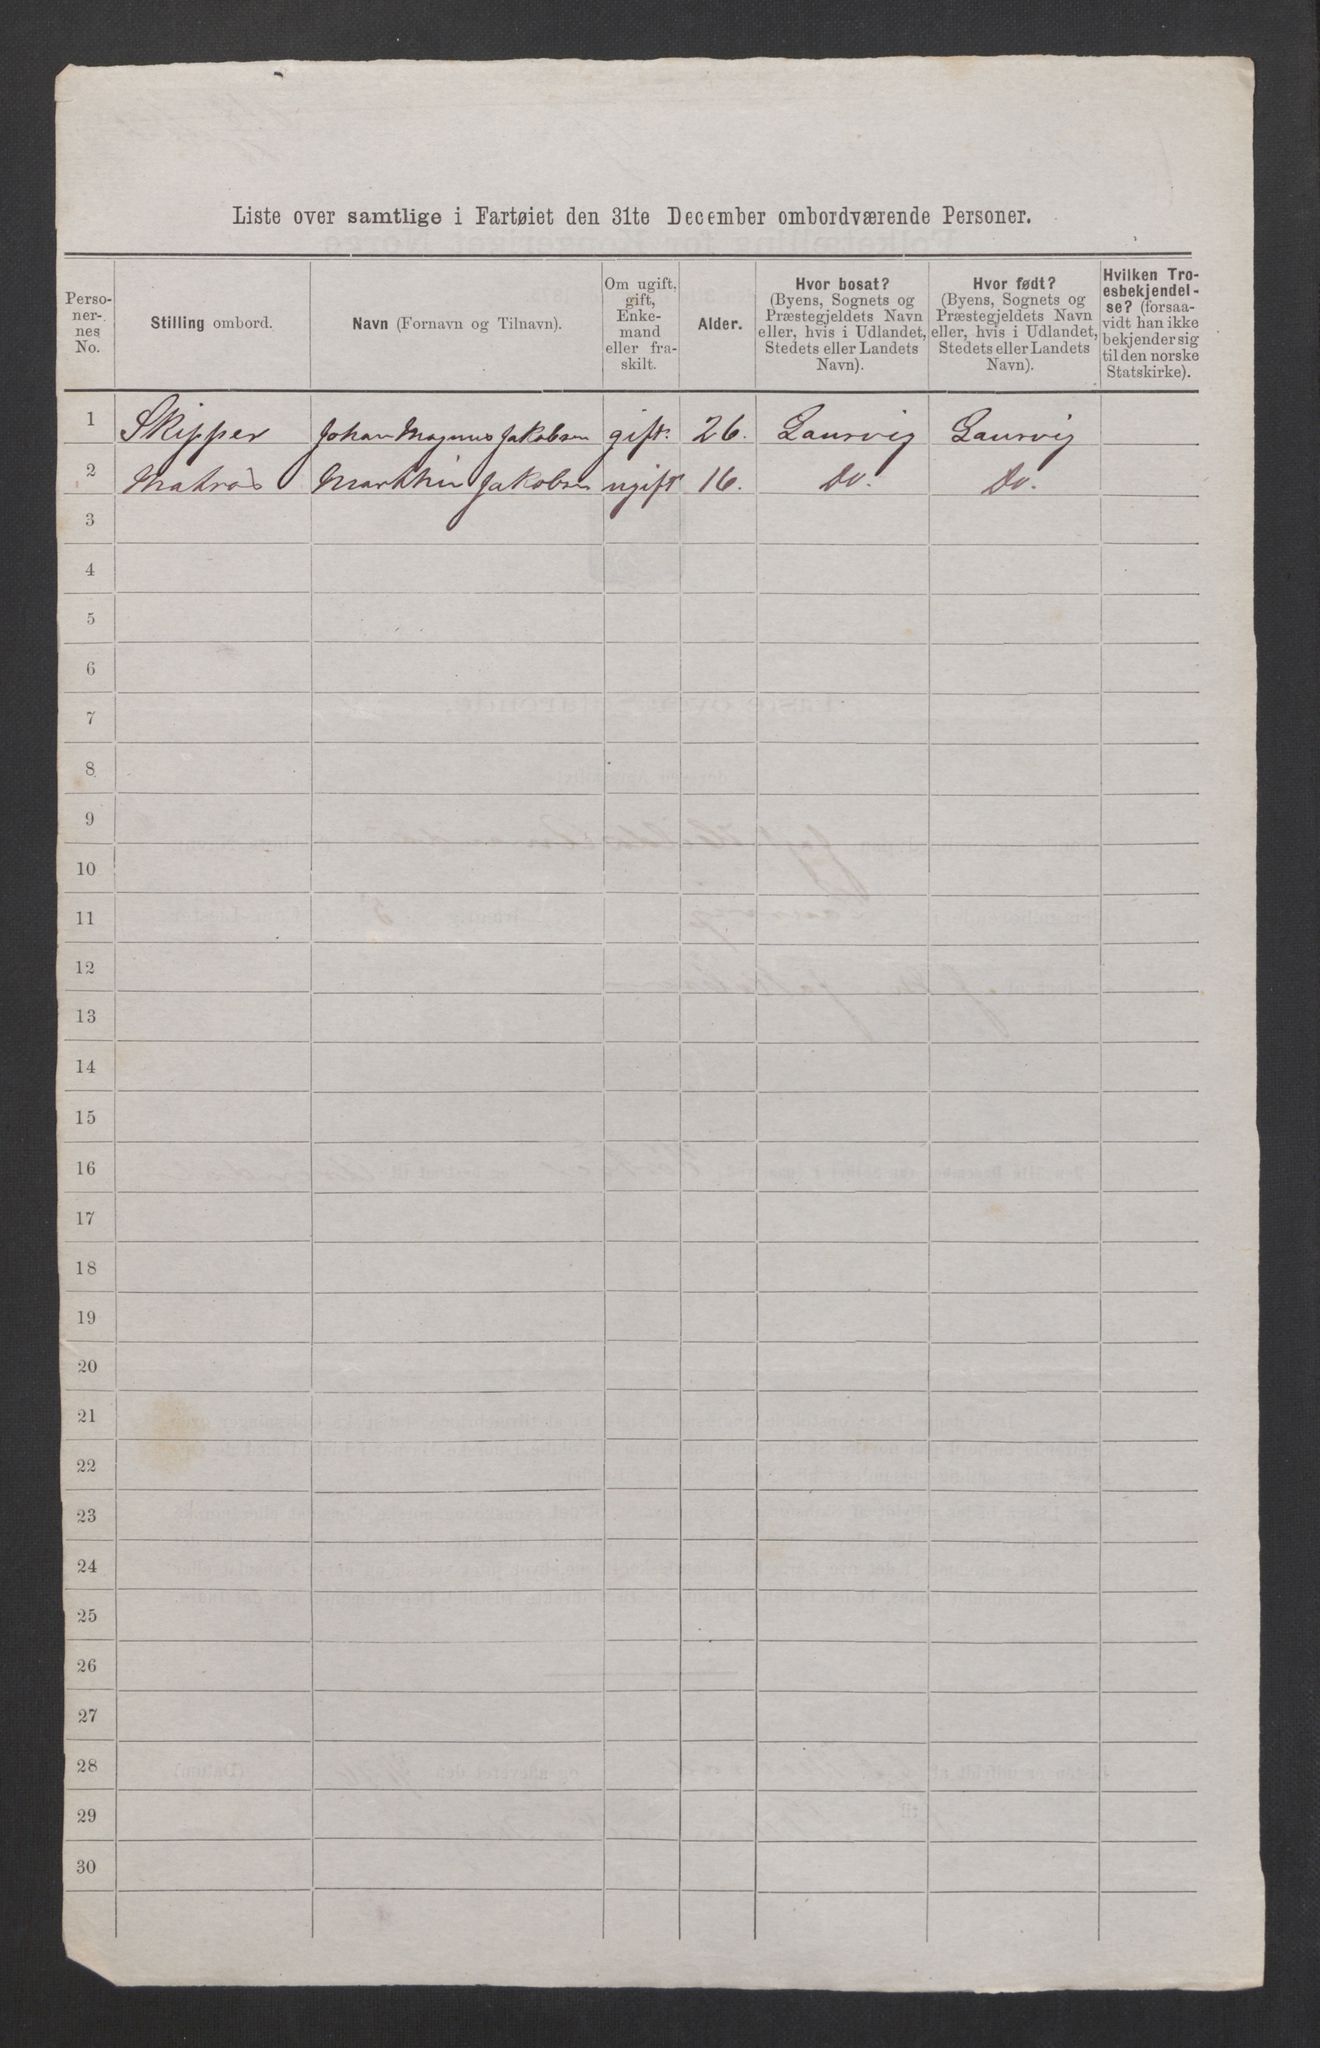 Liste over samtlige i Fartøiet den 31te December ombordværende Personer.
Perso-
ner-
nes
No.
Stilling ombord.
Navn (Fornavn og Tilnavn).
Om ugift,
gift,
Enke-
mand
eller fra-
skilt.
Alder.
Hvor bosat?
(Byens, Sognets og
Præstegjeldets Navn
eller, hvis i Udlandet,
Stedets eller Landets
Navn).
Hvor født?
(Byens, Sognets og
Præstegjeldets Navn
eller, hvis i Udlandet,
Stedets eller Landets
Navn).
Hvilken Tro-
esbekjendel-
se? (forsaa-
vidt han ikke
bekjender sig
til den norske
Statskirke).
1 Skipper Johan Magnus Jakobsen gift. 26. Laurvig Laurvig
2 Matros Marthin Jakobsen ugift 16. Do. Do.
3
4
5
6
7
8
9
10
11
12
13
14
15
16
17
18
19
20
21
22
23
24
25
26
27
28
29
30